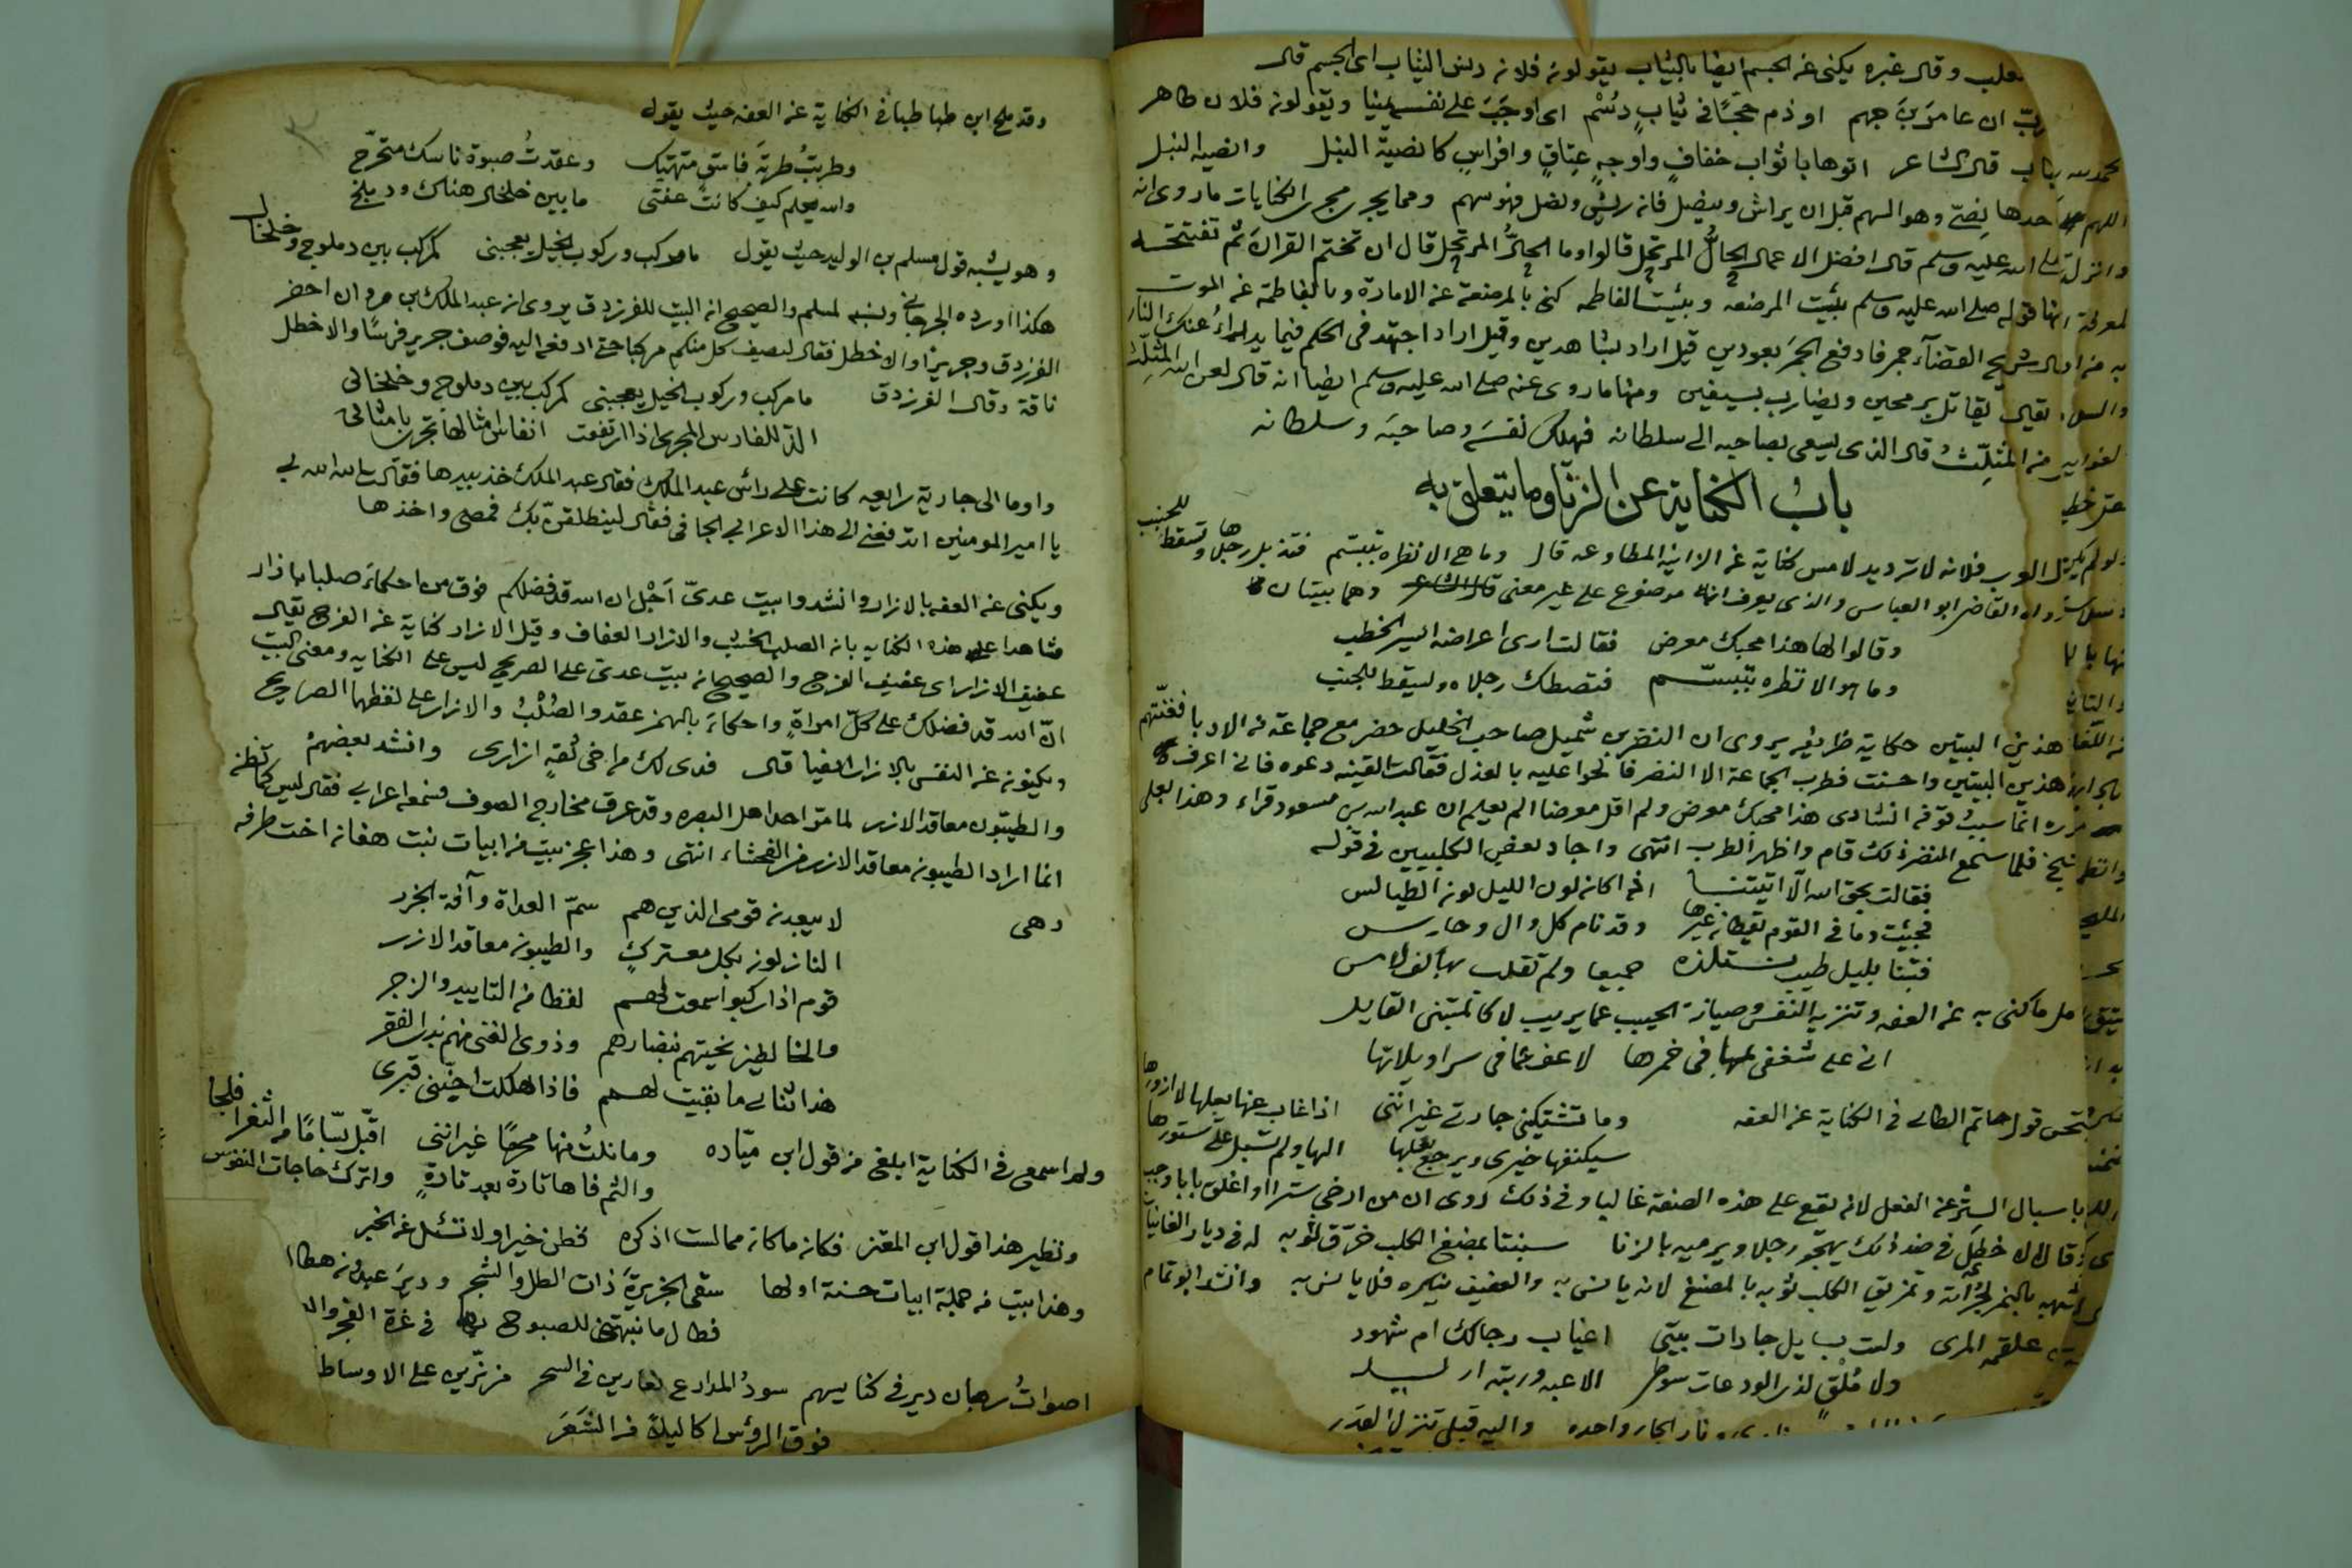 وقال غيره يكنى عن الجسم ايضا بالثياب يقولون فلان دنس الثياب اى الجسم قال
ان عامر بن جهم اوذم حجا فى ثياب دسم اى اوجب على نفسه يقولون فلان طاهر
قال الشاعر اتوها باثواب خفاف واوجه عتاق وافراس كانضية النبل وانضية النبل
وهو السهم قبل ان يراش وينصل فانه ريش ونصل فهو سهم ومما يجرى مجرى الكنايات ما روى انه
صلى الله عليه وسلم قال افضل الاعمال الحال المرتحل قالوا وما الحال المرتحل قال ان تختم القران ثم تفتتحه
قوله صلى الله عليه وسلم بئست المرضعة وبئست الفاطمه كنى بالمرضعة عن الامارة وبالفاطمة عن الموت
شريح القضاء جمر فادفع الجمر بعودين قيل اراد بشاهدين وقيل اراد اجتهد فى الحكم فيما يدراء عنك النار
يقال يقاتل برمحين ويضارب بسيفين ومنها ما روى عنه صلى الله عليه وسلم ايضا انه قال لعن الله المثلث
من المثلث قال الذى يسعى بصاحبه الى سلطانه فيهلك نفسه وصاحبه وسلطانه
باب الكناية عن الزنا وما يتعلق به
فلانه لا ترد يد لامس كناية عن الزانية المطاوعه قال وما هى الا نظره بتبسم فتذبل رجلاها وتسقط للجنب
رواه القاضى ابو العباس والذى يعرف انه موضوع على غير معنى قال الشاعر وهما بيتان
وقالوا لها هذا محبك معرض فقالت ارى اعراضه ايسر الخطب
وما هو الا نظره بتبسم فتصطك رجلاه ويسقط للجنب
هذين البيتين حكاية ظريفه يروى ان النضر بن شميل صاحب الخليل حضر مع جماعة من الادبا فغنتهم
هذين البيتين واحسنت فطرب الجماعة الا النضر فانحوا عليه بالعذل فقالت القينه دعوه فانى اعرف
انشادى هذا محبك معرض ولم اقل معرضا الم يعلم ان عبد الله بن مسعود قراء وهذا بعلى
شيخ فلما سمع النضر ذلك قام واظهر الطرب انتهى واجاد بعض الكلبيين فى قوله
فقالت بحق الله الا اتيتنا اذا كان لون الليل لون الطيالس
فجئت وما فى القوم يقظان غيرها وقد نام كل وال وحارس
فبتنا بليل طيب نستلذه جميعا ولم تقلب بها كف لامس
ما كنى به عن العفه وتنزيه النفس وصيانة الحبيب عما يريب لا كالمتنبى القايل
انى على شغفى بما فى خمرها لاعف عما فى سراويلاتها
قول حاتم الطائى فى الكناية عن العفه وما تشتكينى جارتى غير اننى اذا غاب عنها بعلها لا ازورها
سيكنفها خيرى ويرجع بعلها اليها ولم تسبل على ستورها
باسبال الستر عن الفعل لانه يقع على هذه الصنعة غالبا وفى ذلك روى ان من ارخى سترا او اغلق بابا وجب
وقال الاخطل فى ضد ذلك يهجو رجلا ويرميه بالزنا سبنتا بمضغ الكلب خرق ثوبه له فى ديار الغانيات
بالنمر لجرأته وتمزيق الكلب ثوبه بالمضغ لانه يانس به والعفيف ينكره فلا يانس به وانشد ابو تمام
علقمه المرى ولست بسايل جارات بيتى اغياب رجالك ام شهود
ولا ملق لذى الودعات سوطى الاعبه وريبته اريد
ونار الجار واحده واليه قبلى تنزل القدر
وقد ملح ابن طباطبا فى الكناية عن العفه حيث يقول
وطربت طربة فاسق متهتك وعقدت صبوة ناسك متحرج
والله يعلم كيف كانت عفتى ما بين خلخال هناك ودملج
وهو يشبه قول مسلم بن الوليد حيث يقول ما مركب وركوب الخيل يعجبنى كمركب بين دملوج وخلخال
هكذا اورده الجرجانى ونسبه لمسلم والصحيح ان البيت للفرزدق يروى ان عبد الملك بن مروان احضر
الفرزدق وجريرا والاخطل فقال ليصف كل منكم مركبا حتى ادفعه اليه فوصف جرير فرسا والاخطل
ناقة وقال الفرزدق ما مركب وركوب الخيل يعجبنى كمركب بين دملوج وخلخال
الذ للفارس المجرى اذا ارتفعت انفاس امثالها تجرى بامثالى
واوما الى جارية رابعه كانت على رأس عبد الملك فقال عبد الملك خذ بيدها فقالت الله الله بى
يا امير المومنين اتدفعنى الى هذا الاعرابى الجافى فقال لينطلقن بك فمضى واخذها
ويكنى عن العفه بالازار وانشدوا بيت عدى اجل ان الله قد فضلكم فوق من احكاء صلبا بازار
شاهدا على هذه الكنايه بان الصلب الحسب والازار العفاف وقيل الازار كناية عن الفرج يقال
عفيف الازار اى عفيف الفرج والصحيح ان بيت عدى على الصريح ليس على الكنايه ومعنى البيت
ان الله قد فضلك على كل امراة واحكاء بالهمز عقد والصلب والازار على لفظهما الصريح
ويكنون عن النفس بالازار ايضا قال فدى لك من اخى ثقة ازارى وانشد بعضهم
والطيبون معاقد الازر لما مر احد اهل البصره وقد عرق مخارج الصوف فسمعه اعرابى فقال ليس كما تظن
انما اراد الطيبون معاقد الازر من الفحشاء انتهى وهذا عجز بيت من ابيات بنت هفان اخت طرفه
وهى لا يبعدن قومى الذين هم سم العداة وآفة الجزر
النازلون بكل معترك والطيبون معاقد الازر
قوم اذا ركبوا سمعت لهم لغطا من التاييد والزجر
والخالطين نحيتهم بنضارهم وذوى الغنى منهم بذى الفقر
هذا ثنائى ما بقيت لهم فاذا هلكت اجننى قبرى
ولم اسمع فى الكناية ابلغ من قول ابن مياده وما نلت منها محرما غير اننى اقبل بساما من الثغر افلجا
والثم فاها تارة بعد تارة واترك حاجات النفوس
ونظير هذا قول ابن المعتز فكان ما كان مما لست اذكره فظن خيرا ولا تسئل عن الخبر
وهذا بيت من جملة ابيات حسنة اولها سقى الجزيرة ذات الطل والشجر ودير عبدون هطال
فطال ما نبهتنى للصبوح بها فى غرة الفجر
اصوات رهبان دير فى كنايسهم سود المدارع نعارين فى السحر مزنرين على الاوساط
فوق الرؤس اكاليلا من الشعر